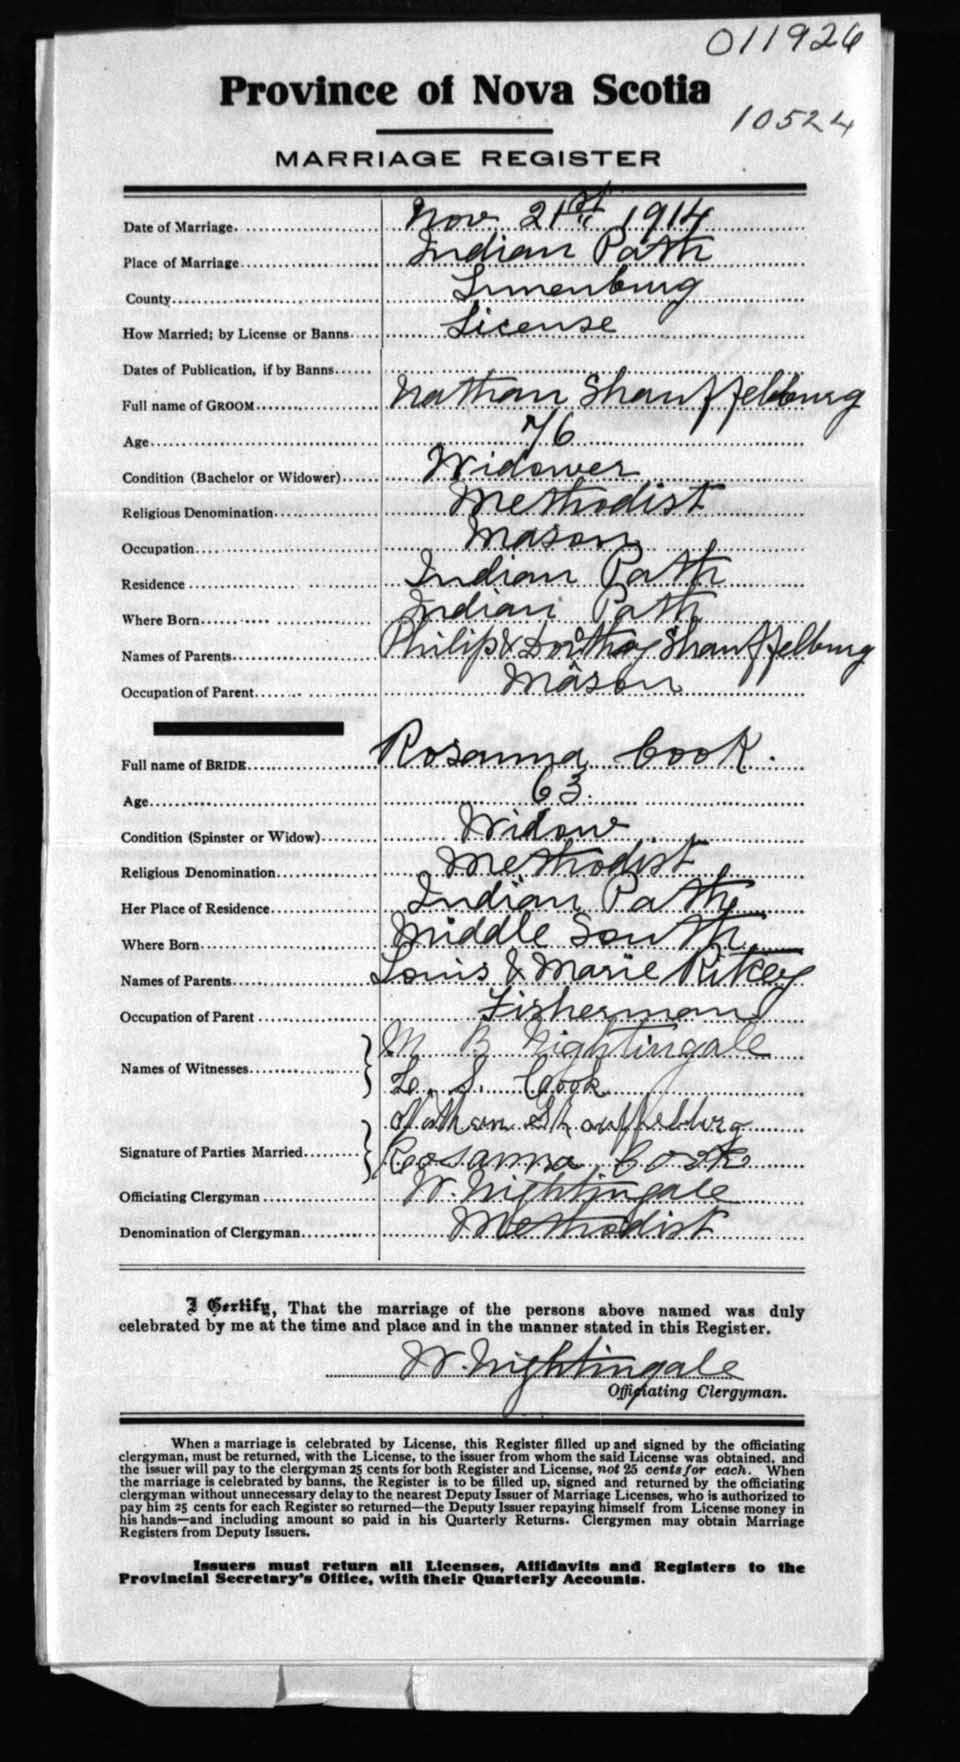 011926
Province of Nova Scotia
10524
MARRIAGE REGISTER
Date of Marriage Nov. 21st 1914
Place of Marriage Indian Path
County Lunenburg
How Married; by License or Banns License
Dates of Publication, if by Banns
Full name of GROOM Nathan Shauffelburg
Age 76
Condition (Bachelor or Widower) Widower
Religious Denomination Methodist
Occupation Mason
Residence Indian Path
Where Born Indian Path
Names of Parents Philip & Dorothy Shauffelburg
Occupation of Parent Mason
Full name of BRIDE Rosanna Cook.
Age 63.
Condition (Spinster or Widow) Widow
Religious Denomination Methodist
Her Place of Residence Indian Path
Where Born Middle South
Names of Parents Louis & Marie Ritcey
Occupation of Parent Fisherman
Names of Witnesses M B Nightingale
L. S. Cook
Signature of Parties Married Nathan Shauffelburg
Rosanna Cook
Officiating Clergyman W. Nightingale
Denomination of Clergyman Methodist
I Certify, That the marriage of the persons above named was duly
celebrated by me at the time and place and in the manner stated in this Register.
W. Nightingale
Officiating Clergyman.
When a marriage is celebrated by License, this Register filled up and signed by the officiating
clergyman, must be returned, with the License, to the issuer from whom the said License was obtained, and
the issuer will pay to the clergyman 25 cents for both Register and License, not 25 cents for each. When
the marriage is celebrated by banns, the Register is to be filled up, signed and returned by the officiating
clergyman without unnecessary delay to the nearest Deputy Issuer of Marriage Licenses, who is authorized to
pay him 25 cents for each Register so returned—the Deputy Issuer repaying himself from License money in
his hands—and including amount so paid in his Quarterly Returns. Clergymen may obtain Marriage
Registers from Deputy Issuers.
Issuers must return all Licenses, Affidavits and Registers to the
Provincial Secretary's Office, with their Quarterly Accounts.